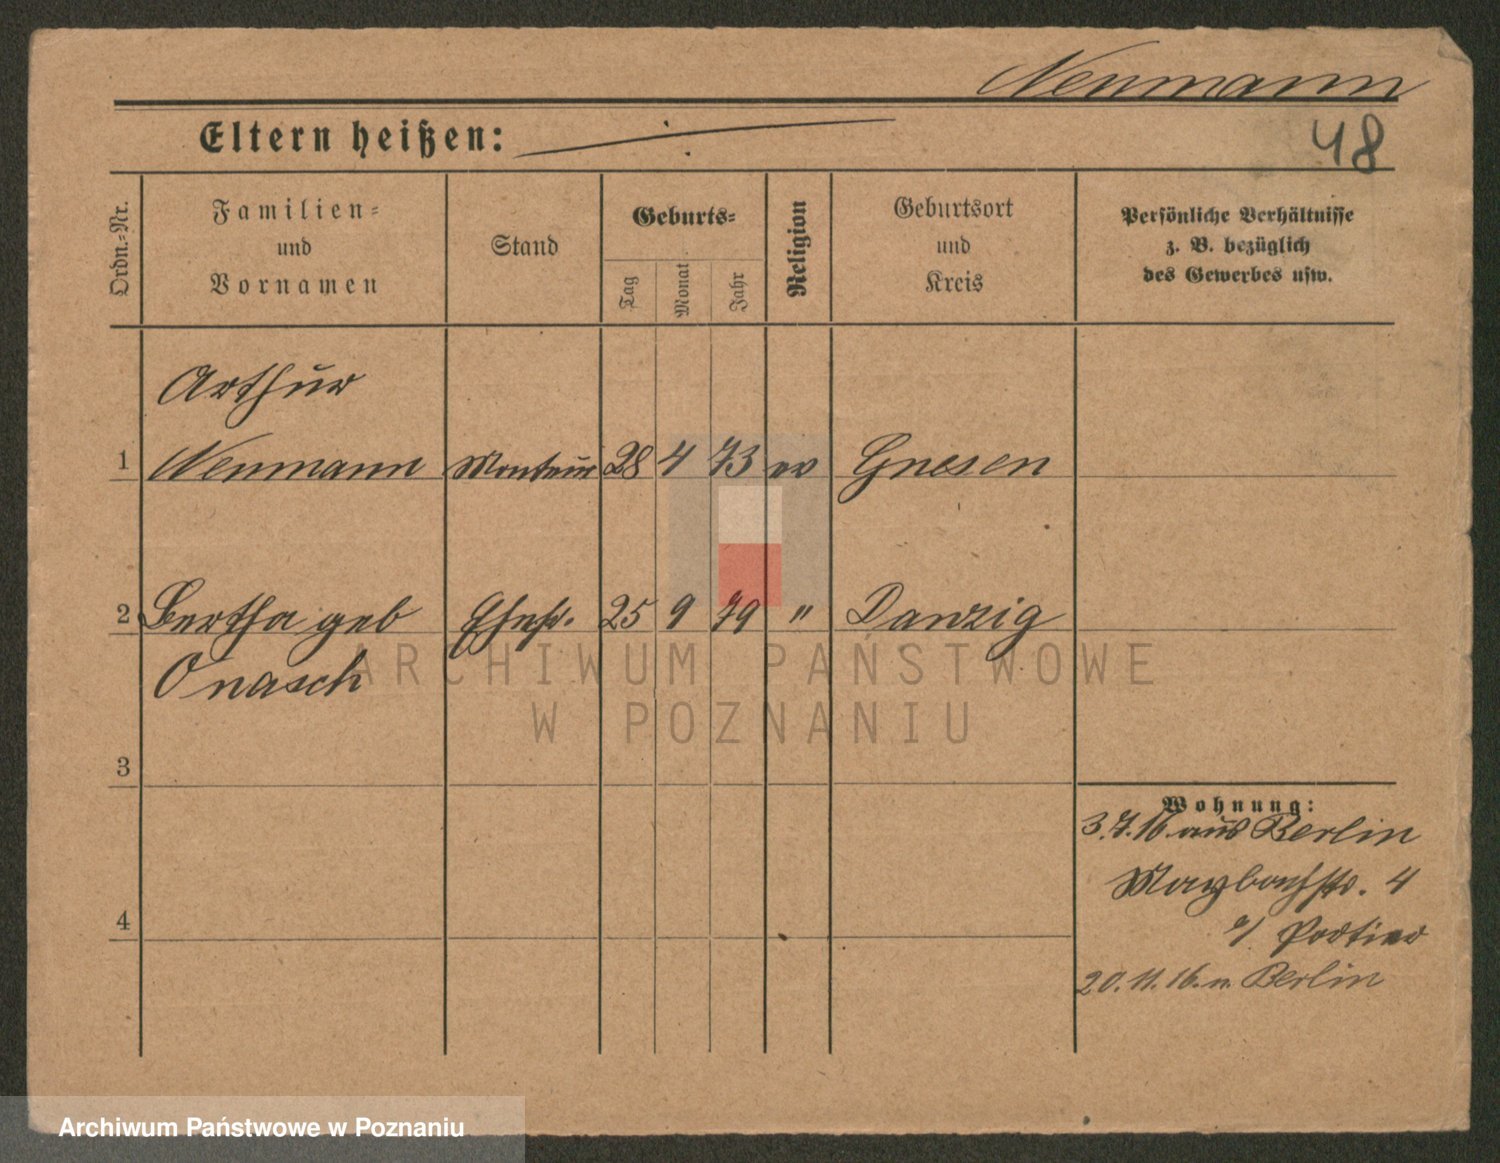 Neumann
Eltern heißen:
48
Ordn.-Nr.
Familien-
und
Vornamen
Stand
Geburts-
Tag
Monat
Jahr
Religion
Geburtsort
und
Kreis
Persönliche Verhältnisse
z. B. bezüglich
des Gewerbes usw.
Arthur
1 Neumann Monteur 28 4 73 ev Gnesen
2 Bertha geb Ehefr. 25 9 79 " Danzig
Onasch
ARCHIWUM PAŃSTWOWE
W POZNANIU
3
Wohnung:
3.7.16 aus Berlin
Maybachstr. 4
4
Portier
20.11.16. n. Berlin
Archiwum Państwowe w Poznaniu